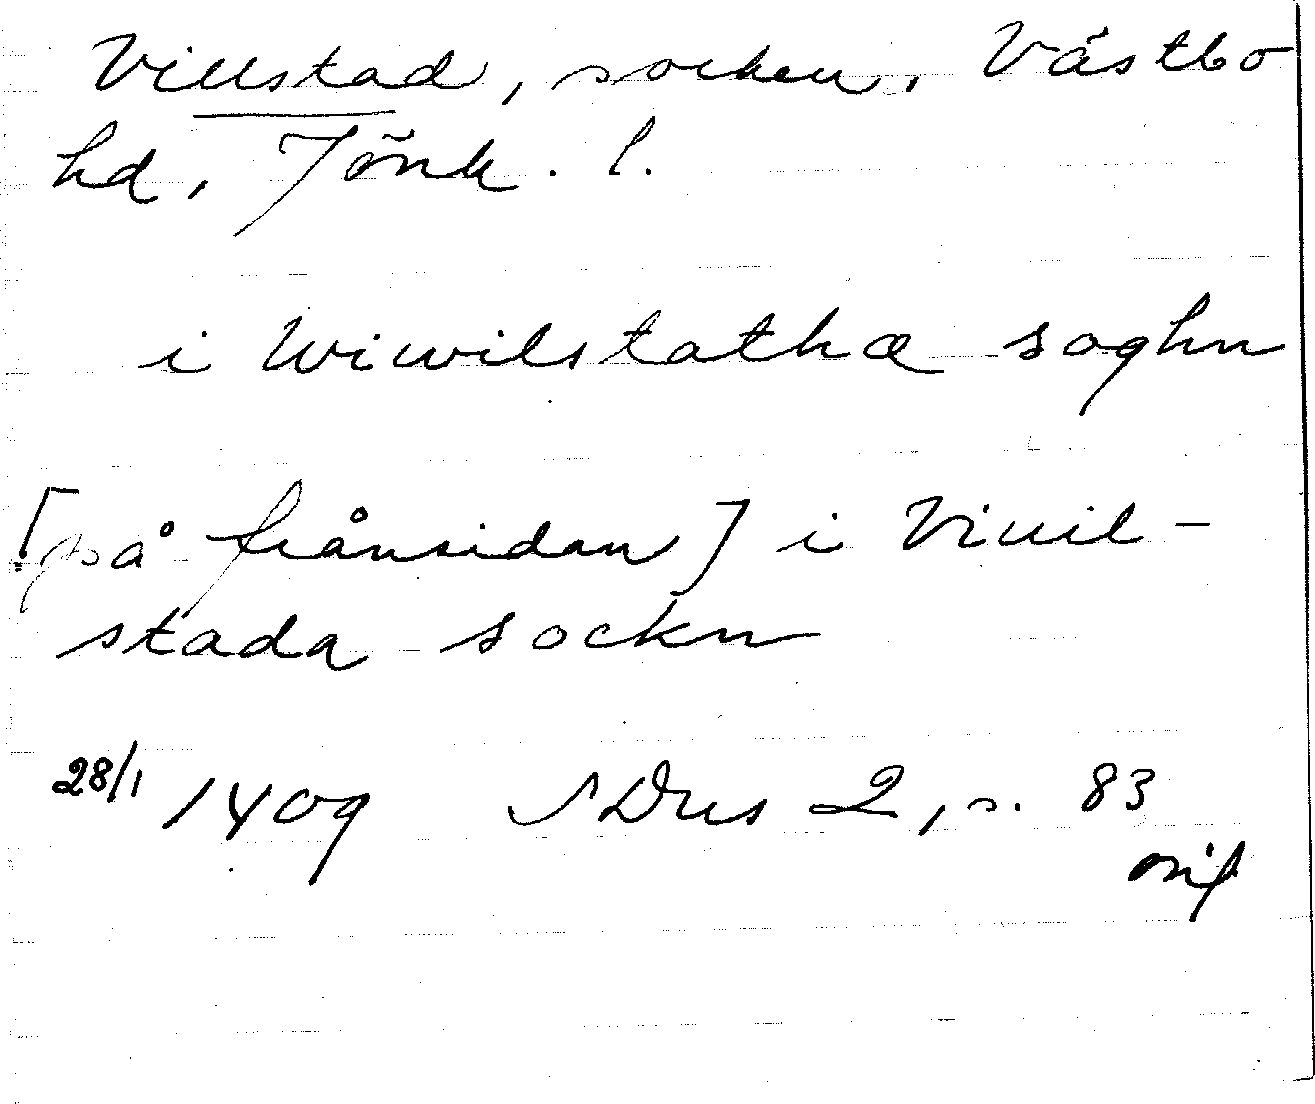 Villstad, socken, Västbo
hd, Jönk. l.
i Wiwilstathæ soghn
[på frånsidan] i Viuil-
stada sockn
28/1 1409 SDns 2, s. 83
orig